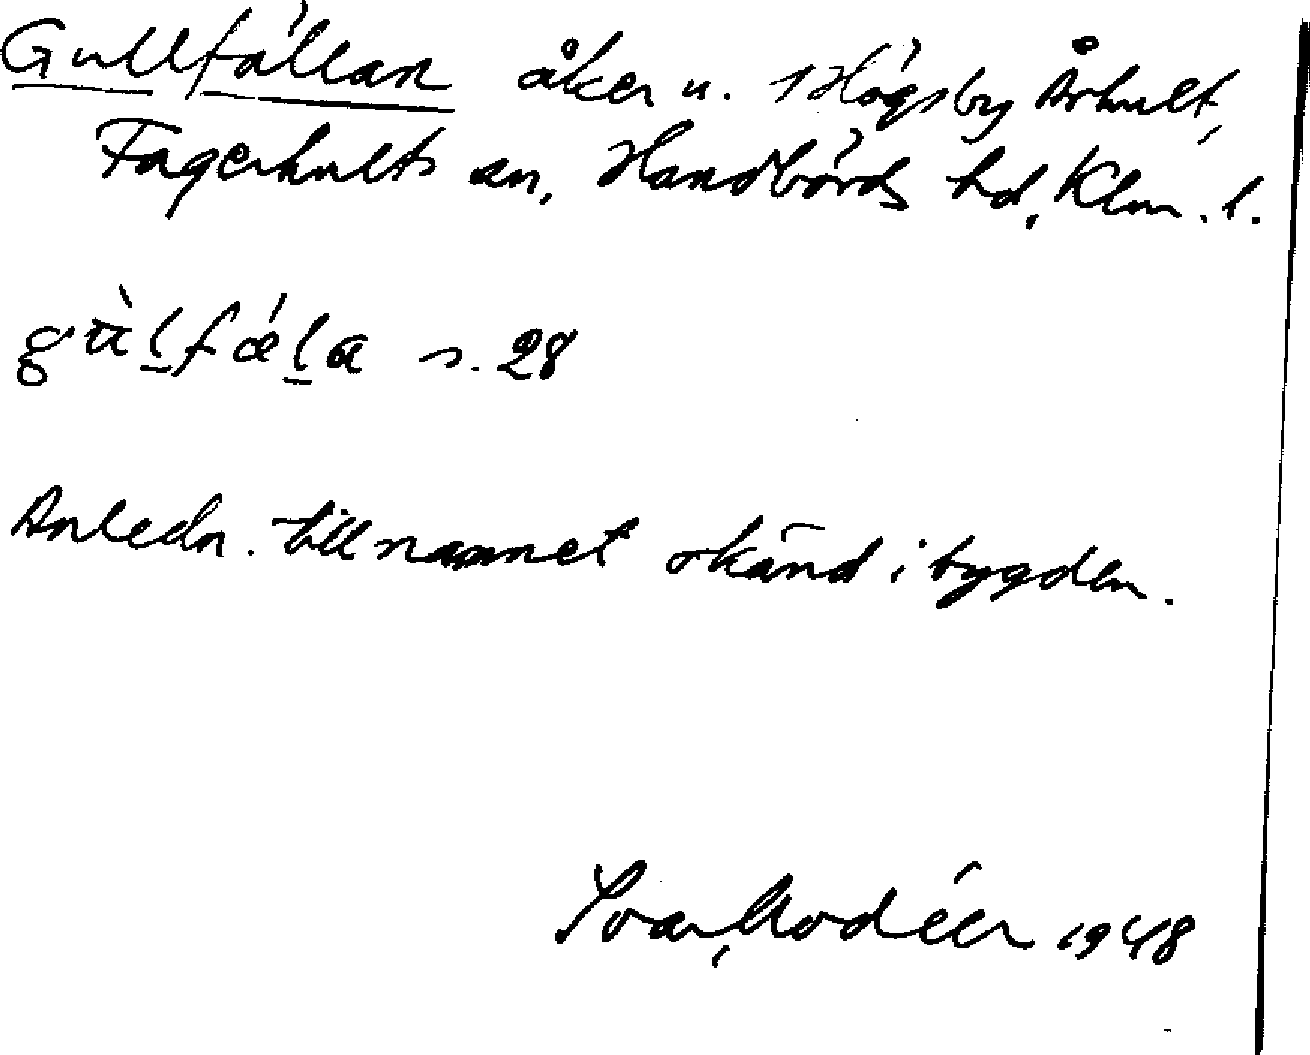 Gullfällan åker u. 1 Högsby Århult,
Fagerhults sn, Handbörds hd, Klm. l.
gùl̠fǽl̠a s. 28
Anledn. till namnet okänd i bygden.
Ivar Modéer 1948